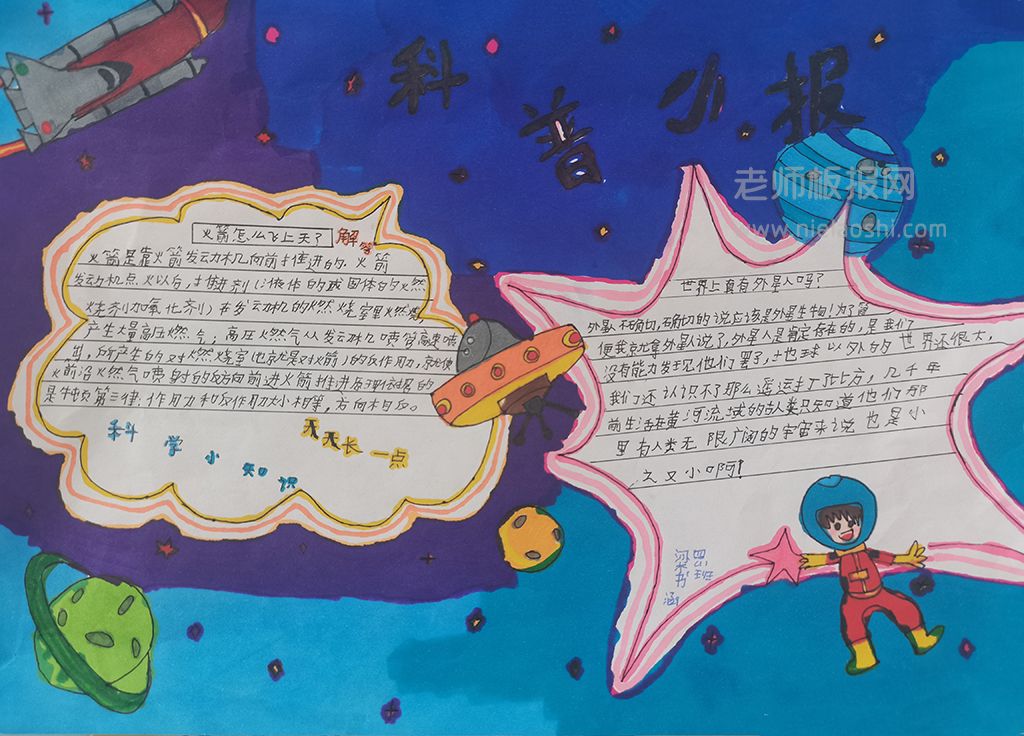 科普小报
老师板报网
www.nisiboshi.com
火箭怎么飞上天了 解答
火箭是靠火箭发动机向前推进的.火箭
发动机点火以后,推进剂(液体的或固体的燃
烧剂加氧化剂)在发动机的燃烧室里燃烧
产生大量高压燃气;高压燃气从发动机喷管高速喷
出,所产生的对燃烧室也就是对火箭)的反作用力,就使
火箭沿燃气喷射的反向前进火箭推进原理依据的
是牛顿第三律:作用力和反作用力大小相等,方向相反。
科学小知识
天天长一点
世界上真有外星人吗?
外星人不确切,确切的说应该是外星生物!为了简
便我就尊外星人说了,外星人是肯定存在的,是我们
没有能力发现他们罢了,地球以外的世界还很大,
我们还认识不了那么遥远的地方,几千年
前生活在黄河流域的古人类只知道他们那
里有人类无限广阔的宇宙来说也是小
之又小啊!
四班
梁书涵